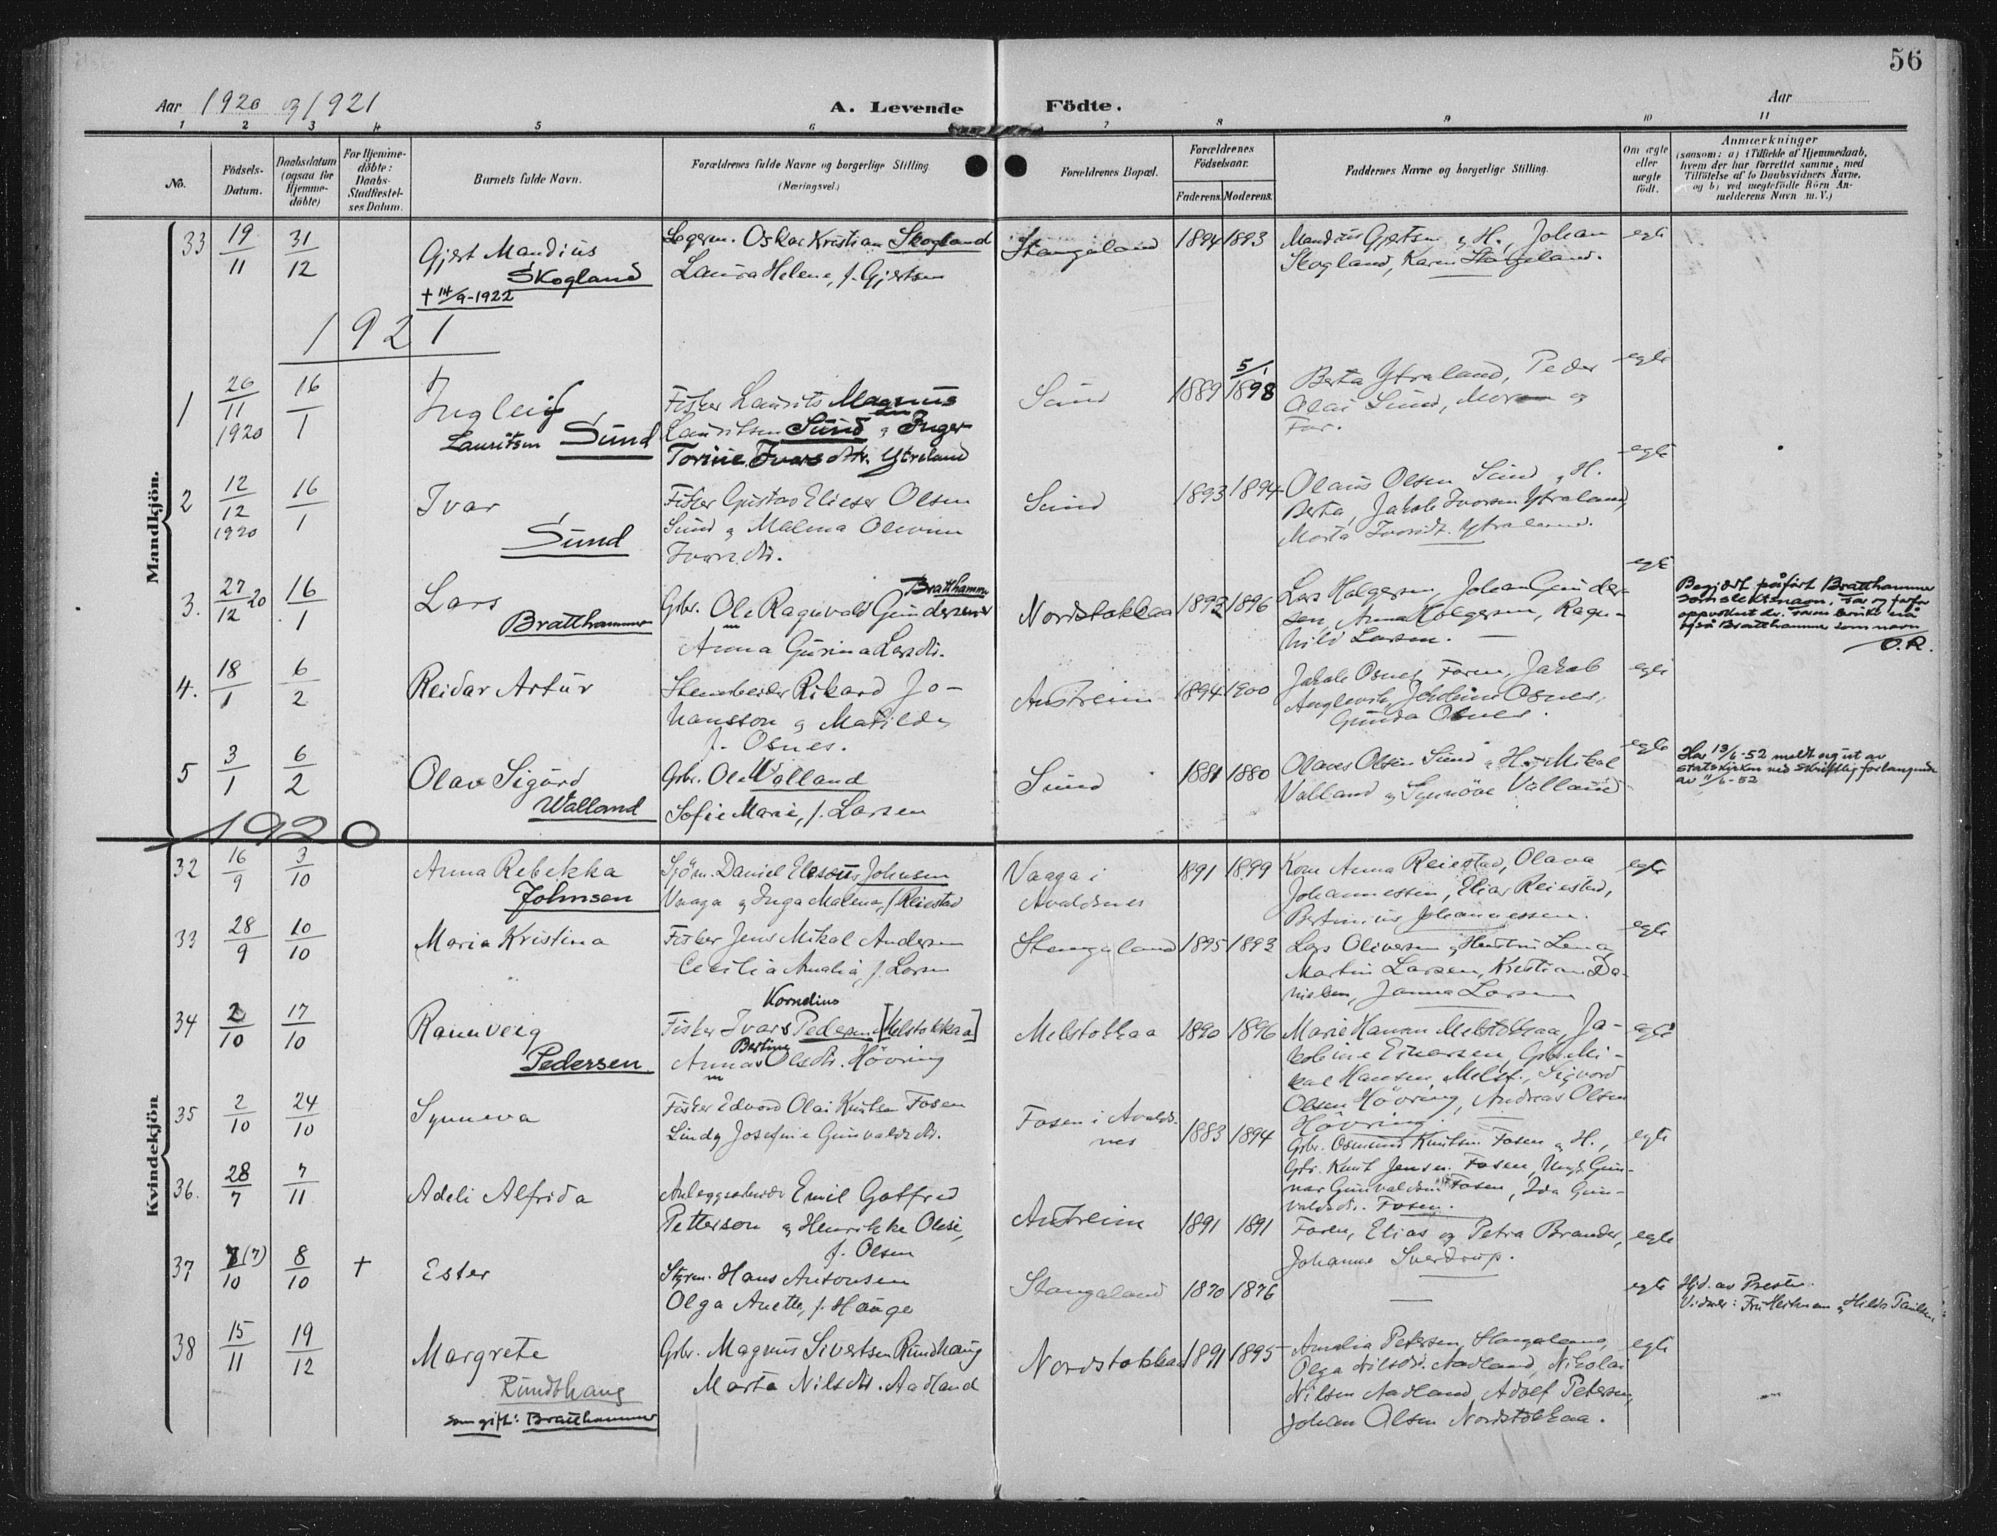 56
Aar 1920 og 1921
A. Levende Födte.
Aar
1 2 3 4 5 6 7 8 9 10 11
No.
Födsels-
Datum.
Daabsdatum
(ogsaa for
Hjemme-
döbte)
For Hjemme-
döbte:
Daabs-
Stadfæstel-
ses Datum.
Barnets fulde Navn.
Forældrenes fulde Navne og borgerlige Stilling
(Næringsvei.)
Forældrenes Bopæl.
Forældrenes
Födselsaar.
Faderens. Moderens.
Faddernes Navne og borgerlige Stilling.
Om ægte
eller
uægte
født.
Anmærkninger
(saasom: a) i Tilfælde af Hjemmedaab,
hvem der har forrettet samme, med
Tilföielse af to Daabsvidners Navne.
og b) ved uægtefödte Börn An-
melderens Navn m. V.)
Mandkjön.
33 19/11 31/12 Gjert Mandius
Skogland
+ 14/9-1922
Oskar Kristian Skogland
Laura Helene, f. Gjertsen
Stangaland 1894 1893
Mandius Gjertsen og H., Johan
Skogland, Karen Stangeland.
egte
1921
1 26/11 1920 16/1 Ingleif
Lauritsen Sund
Fisker Laurits Magnus
Lauritsen Sund og Inger
Torine Ivarsdtr. Ytreland
Sund 1889 5/1 1898
Berta Ytraland, Peder
Olai Sund, Moren og
Far.
egte
2 12/12 1920 16/1 Ivar
Sund
Fisker Gustav Elieser Olsen
Sund og Malena
Ivarsdtr.
Sund 1893 1894
Olaus Olsen Sund, H.
Berta, Jakob Ivarsen Ytraland,
Marta Ivarsdt. Ytraland.
egte
3. 27/12 20 16/1 Lars
Bratthammer
Gbr. Ole Ragnvald Gundersen
Bratthammer
Anna Gurina Larsdtr.
Nordstokkaa 1892 1896
Lars Holgersen, Johan Gunder-
sen, Anna Holgersen, Ragn-
hild Larsen.
egte
Begjært påført Bratthammer
som slektsnavn. Far og farfar
også Bratthammer som navn
O.R.
4. 18/1 6/2 Reidar Artur
Stenarbeider Rikard Jo-
hansson og Matilde
f. Osnes.
Austreim 1894 1900
Jakob Osnes, Faren, Jakob
Anglevik, Osnes,
Gunda Osnes.
egte
5 3/1 6/2 Olav Sigurd
Walland
Gbr. Ole Walland
Sofie Marie, f. Larsen
Sund 1881 1880
Olaus Olsen Sund og H., Mikal
Valland og Synnöve Valland
egte
Har 13/6-52 meldt seg ut av
statskirken ved skriftlig forlangende
av 11/6-52
1920
Kvindekjön
32 16/9 3/10 Anna Rebekka
Johnsen
Sjöm. Daniel Johnsen
Vaaga og Inga Malena, f. Reiestad
Vaaga i
Avaldsnes
1891 1899
Kone Anna Reiestad, Olava
Johannessen, Elias Reiestad,
Bertinius Johannessen.
egte
33 28/9 10/10 Maria Kristina
Fisker Jens Mikal Andersen
Cecilia Amalia f. Larsen
Stangaland 1895 1893
Lars Oliversen og Hustru Lena,
Martin Larsen, Kristian Da-
nielsen, Janna Larsen
egte
34 2/10 17/10 Rannveig
Pedersen
Kornelius
Fisker Ivar Pedersen [Melstokkaa]
Bertine
Anna Olsdtr. Hövring
Melstokkaa 1890 1896
Marie Hansen Melstokkaa, Ja-
kobine Einarsen, Gbr. Mi-
kal Hansen Melst., Sigvard
Olsen Hövring, Andreas Olsen
Hövring.
egte
35 2/10 24/10 Synneva
Fisker Edvard Olai Knutsen Fosen
Lindy Josefine Gunvaldsdtr.
Fosen i Avalds-
nes
1883 1894
Gbr. Osmund Knutsen Fosen og H.,
Gbr. Knut Jensen Fosen, Ungk. Gun-
nar Gunvaldsen Fosen, Ida Gun-
valdsdt. Fosen.
egte
36. 28/7 7/11 Adeli Alfrida
Anlegsarbeider Emil Gotfred
Petterson og Henrikke
f. Olsen
Austreim 1891 1891
Faren, Elias og Petra Brander,
Johanne Sverdrup.
egte
37 7(7)/10 8/10 + Ester
Styrm. Hans Antonsen
Olga Anette, f. Hauge
Stangaland 1870 1876
egte
Hjd. av Presten.
Vidner: og Hilda
38 15/11 19/12 Margrete
Rundhaug
som gift: Bratthammer
Gbr. Magnus Sivertsen Rundhaug
Marta Nilsdtr. Aadland
Nordstokkaa 1891 1895
Amalia Petersen Stangeland,
Olga Nilsdt. Aadland, Nikolai
Nilsen Aadland, Adolf Petersen,
Johan Olsen Nordstokkaa.
egte